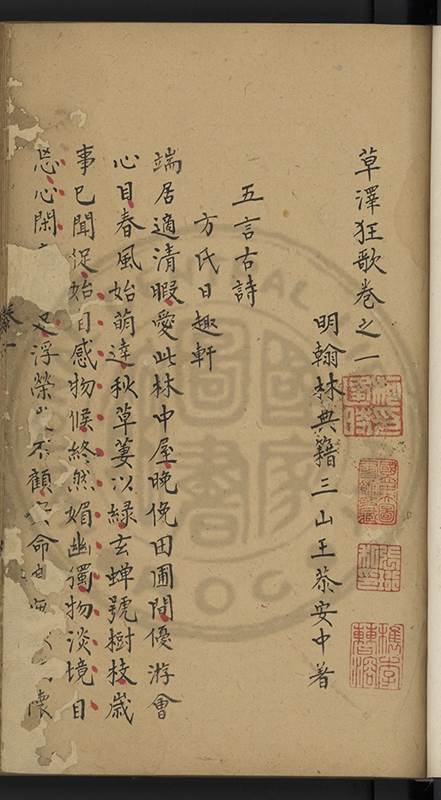 草澤狂歌卷之一
明翰林典籍三山王恭安中著
五言古詩
方氏日趣軒
端居適清暇愛此林中屋晚俛田圃間優游會
心目春風始萌達秋草萋以綠玄蟬號樹枝歲
事已聞促始自感物候終然媚幽獨物淡境自
心閑足浮榮不顧命懷